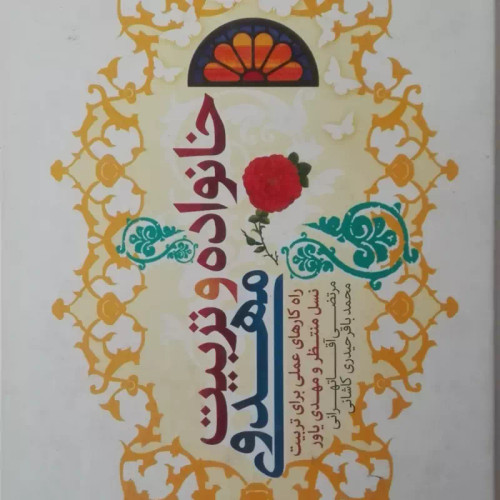 خانواده و تربیت
مهدوی
راه کارهای عملی برای تربیت
نسل منتظر و مهدی یاور
مرتضی آقاتهرانی
محمد باقر حیدری کاشانی